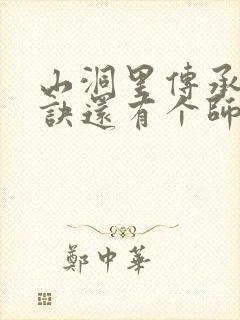 山洞里傳承
訣還有个師
鄭中華